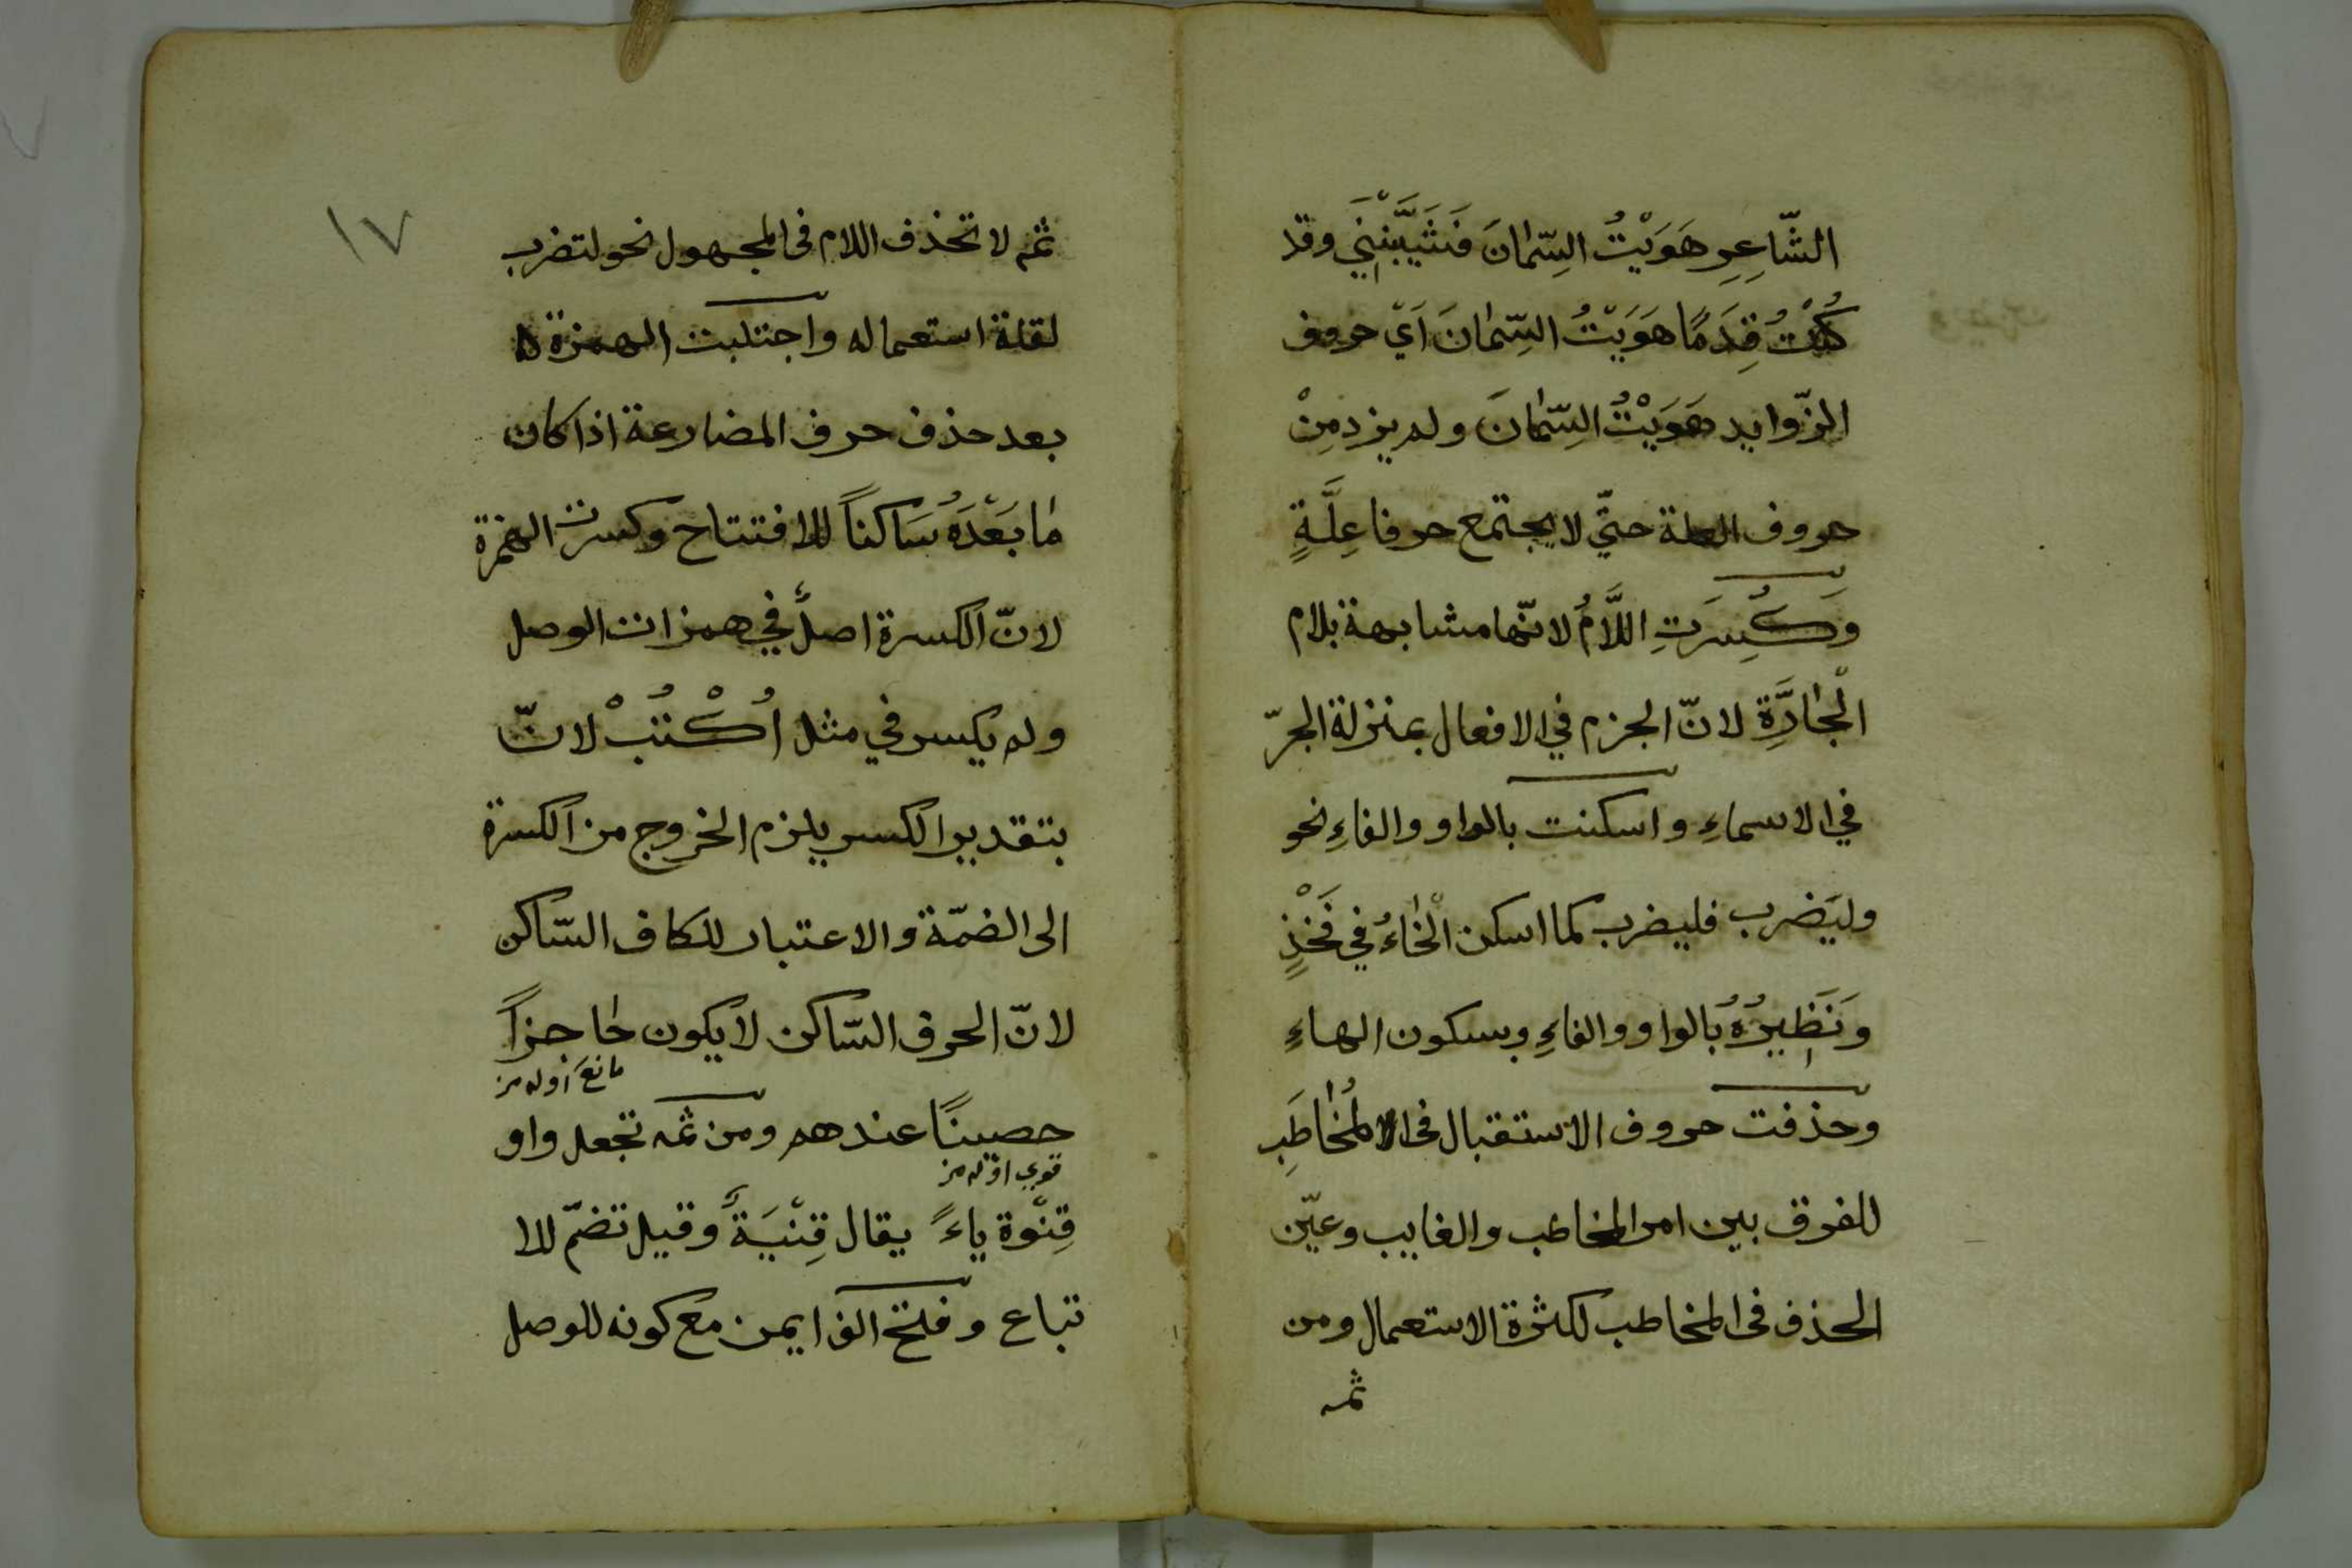 الشّاعِرِ هَوَيْتُ السِّمَانَ فَشَيَّبْنَنِي وقد
كُنْتُ قِدَمًا هَوَيْتُ السِّمَانَ اَيْ حروف
الزّوايد هَوَيْتُ السِّمَانَ ولم يزد مِنْ
حروف العلة حتّي لا يجتمع حرفا عِلَّةٍ
وَكُسِرَتِ اللَّامُ لانّها مشابهة بلام
الْجَارَّةِ لانّ الجزم في الافعال بمنزلة الجرّ
في الاسماءِ واسكنت بالواو والفاءِ نحو
وليَضرب فليضرب كما اسكن الْخَاءُ في فَخْذٍ
وَنَظِيرُهُ بالواو والفاءِ وبسكون الهاءِ
وحذفت حروف الاستقبال فى المُخَاطَبِ
للفرق بين امر المخاطب والغايب وعيّن
الحذف فى المخاطب لكثرة الاستعمال ومن
ثمه
١٧
ثم لا تحذف اللام فى المجهول نحو لتضرب
لقلة استعماله واجتلبت الهمزة
بعد حذف حرف المضارعة اذا كان
مَا بَعْدَهُ سَاكناً للافتتاح وكسرت الهمزة
لانّ الكسرة اصلٌ في همزات الوصل
ولم يكسر في مثل اُكْتُبْ لانّ
بتقدير الكسر يلزم الخروج من الكسرة
الى الضمّة والاعتبار للكاف السّاكن
لانّ الحرف السّاكن لا يكون حَاجزاً
مانع اوله مز
حصينًا عندهم ومن ثمه تجعل واو
قوي اوله مز
قِنْوة ياءً يقال قِنْيَةٌ وقيل تضمّ للا
تباع وفتح الف ايمن مع كونه للوصل